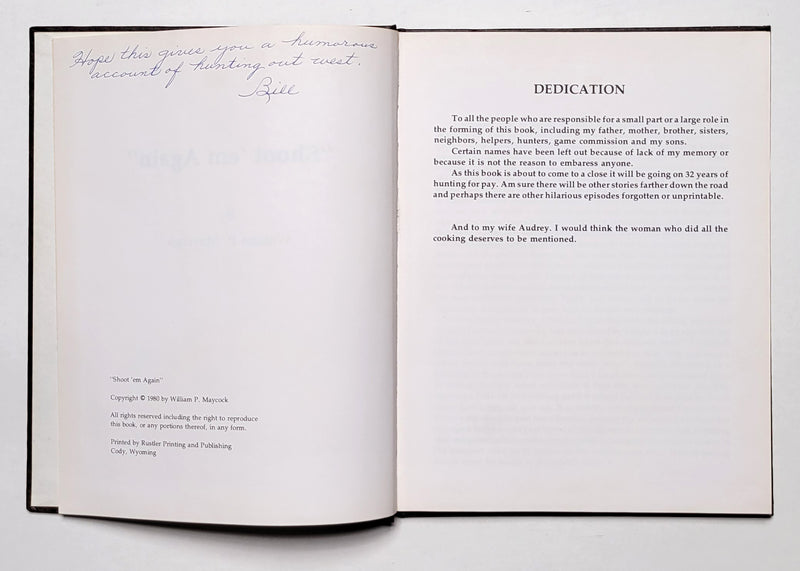 Hope this gives you a humorous
account of hunting out west.
Bill
"Shoot 'em Again"
Copyright © 1980 by William P. Maycock
All rights reserved including the right to reproduce
this book, or any portions thereof, in any form.
Printed by Rustler Printing and Publishing
Cody, Wyoming
DEDICATION
To all the people who are responsible for a small part or a large role in
the forming of this book, including my father, mother, brother, sisters,
neighbors, helpers, hunters, game commission and my sons.
Certain names have been left out because of lack of my memory or
because it is not the reason to embaress anyone.
As this book is about to come to a close it will be going on 32 years of
hunting for pay. Am sure there will be other stories farther down the road
and perhaps there are other hilarious episodes forgotten or unprintable.
And to my wife Audrey. I would think the woman who did all the
cooking deserves to be mentioned.